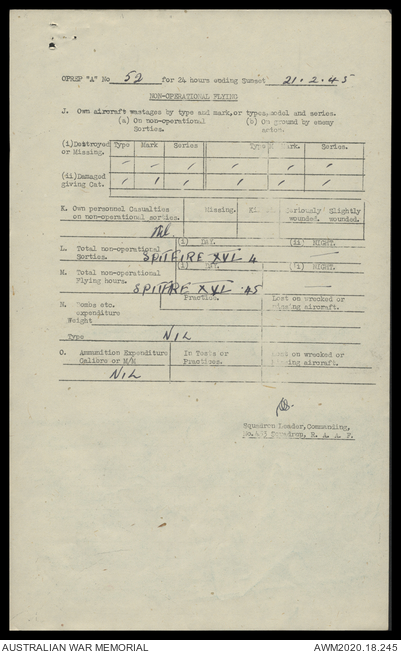 OPREP "A" No 52 for 24 hours ending Sunset 21.2.45
NON-OPERATIONAL FLYING
J. Own aircraft wastages by type and mark, or types, model and series.
(a) On non-operational (b) On ground by enemy
Sorties. action.
(i) Destroyed Type Mark Series Type Mark. Series.
or Missing.
(ii) Damaged
giving Cat.
K. Own personnel Casualties Missing. Killed Seriously Slightly
on non-operational sorties. wounded. wounded.
Nil.
L. Total non-operational (i) DAY. (ii) NIGHT.
Sorties. SPITFIRE XVI 4
M. Total non-operational (i) DAY. (i) NIGHT.
Flying hours.
SPITFIRE XVI .45
N. Bombs etc. Practice. Lost on wrecked or
expenditure missing aircraft.
Weight
Type NIL
O. Ammunition Expenditure In Tests or Lost on wrecked or
Calibre or M/M Practices. missing aircraft.
NIL
Squadron Leader, Commanding,
No. 453 Squadron, R. A. A. F.
AUSTRALIAN WAR MEMORIAL AWM2020.18.245